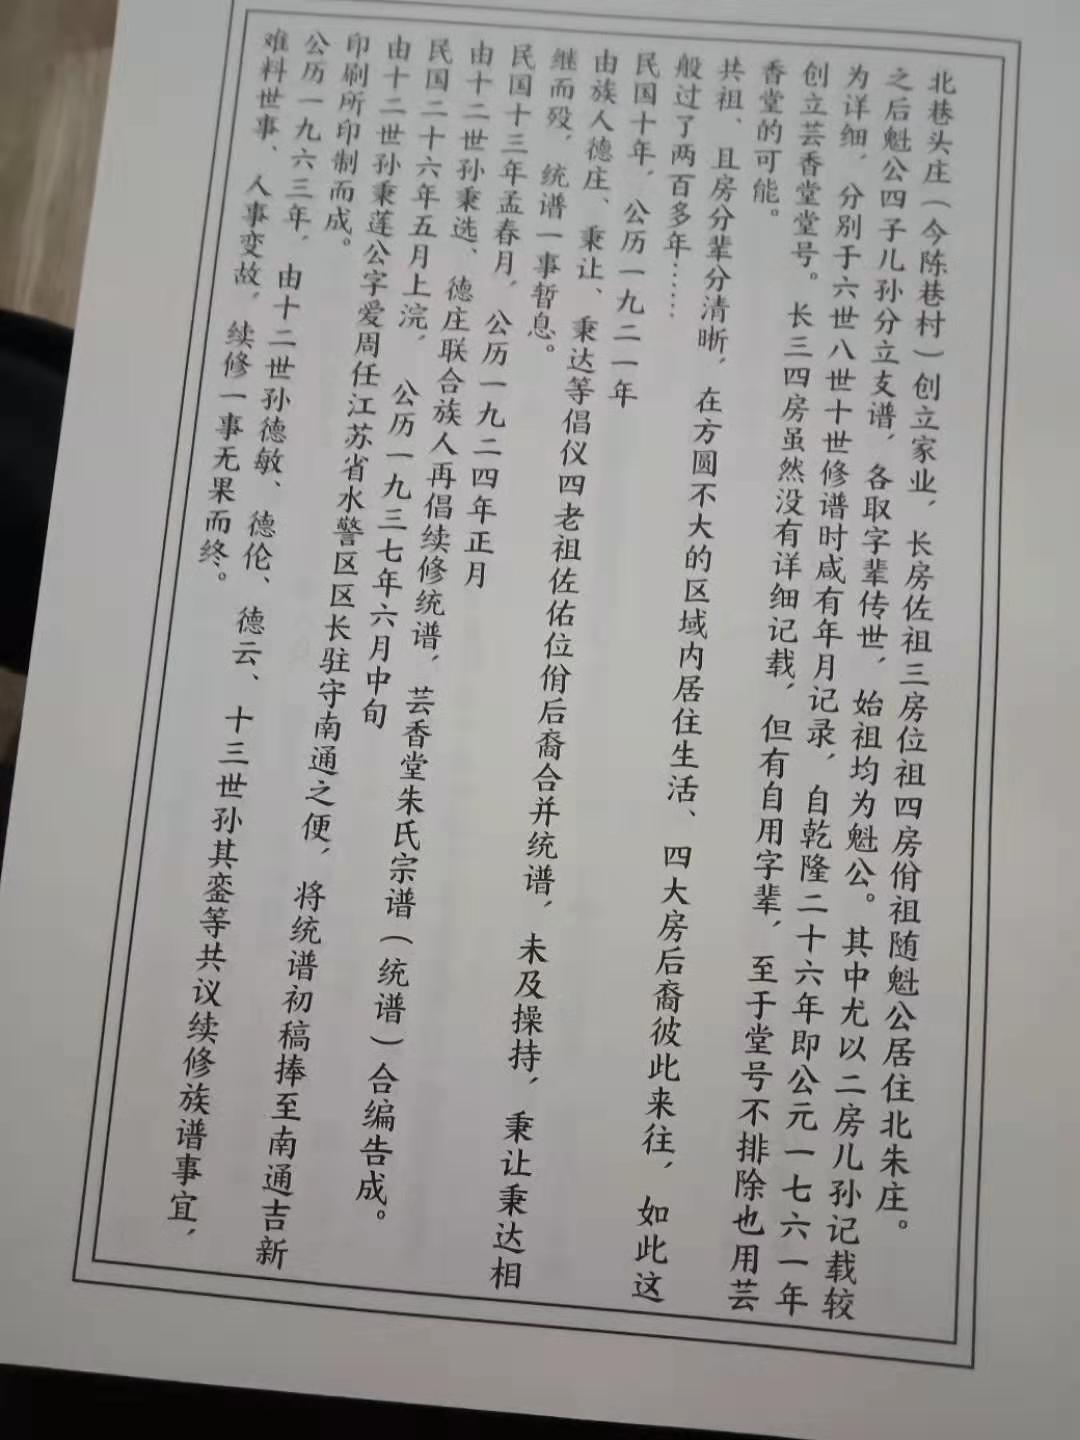 北巷头庄（今陈巷村）创立家业，长房佐祖三房位祖四房佾祖随魁公居住北朱庄。
之后魁公四子儿孙分立支谱，各取字辈传世，始祖均为魁公。其中尤以二房儿孙记载较
为详细，分别于六世八世十世修谱时咸有年月记录，自乾隆二十六年即公元一七六一年
创立芸香堂堂号。长三四房虽然没有详细记载，但有自用字辈，至于堂号不排除也用芸
香堂的可能。
共祖、且房分辈分清晰，在方圆不大的区域内居住生活、四大房后裔彼此来往，如此这
般过了两百多年……
民国十年，公历一九二一年
由族人德庄、秉让、秉达等倡仪四老祖佐佑位佾后裔合并统谱，未及操持，秉让秉达相
继而殁，统谱一事暂息。
民国十三年孟春月，公历一九二四年正月
由十二世孙秉选、德庄联合族人再倡续修统谱，芸香堂朱氏宗谱（统谱）合编告成。
民国二十六年五月上浣，公历一九三七年六月中旬
由十二世孙秉莲公字爱周任江苏省水警区区长驻守南通之便，将统谱初稿捧至南通吉新
印刷所印制而成。
公历一九六三年，由十二世孙德敏、德伦、德云、十三世孙其銮等共议续修族谱事宜，
难料世事、人事变故，续修一事无果而终。